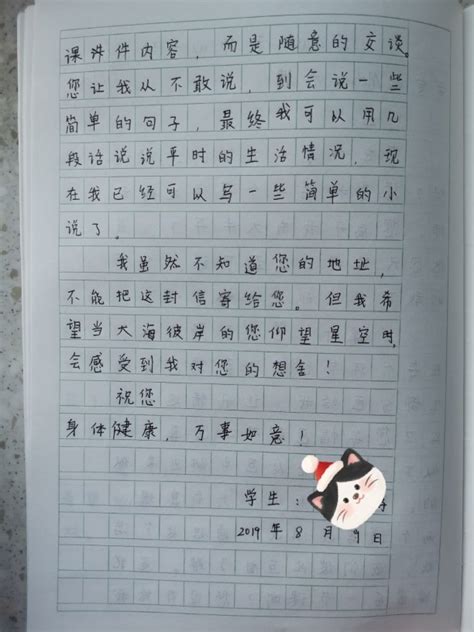 课泮件内容，而是随意的交谈。
您让我从不敢说，到会说一些
简单的句子，最终我可以用几
段话说说平时的生活情况，现
在我已经可以写一些简单的小
说了。
我虽然不知道您的地址，
不能把这封信寄给您。但我希
望当大海彼岸的您仰望星空时，
会感受到我对您的想舍！
祝您
身体健康，万事如意！
学生：
2019年8月9日